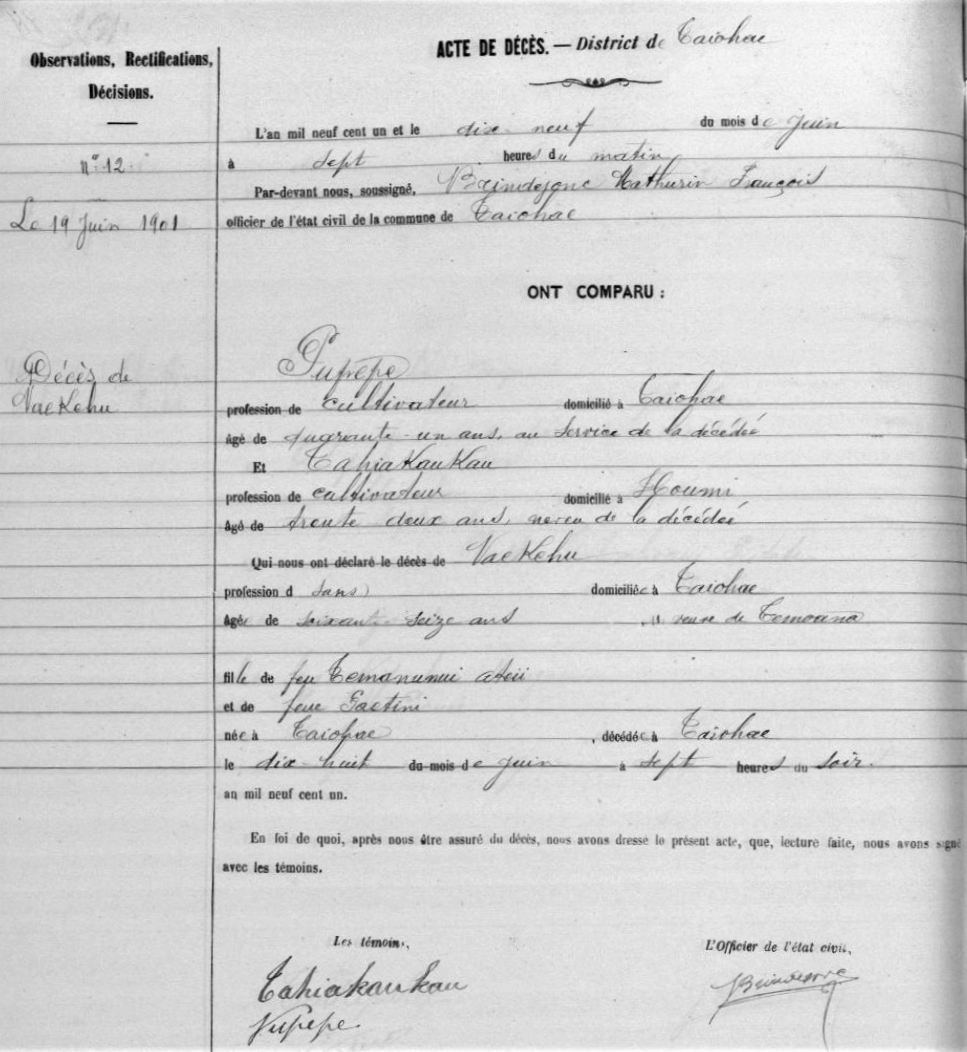 Observations, Rectifications,
Décisions.
n° 12.
Le 19 Juin 1901
Décès de
Vaekehu
ACTE DE DÉCÈS. — District de Taiohae
L'an mil neuf cent un et le dix neuf du mois de juin
à sept heures du matin
Par-devant nous, soussigné, Mathurin François
officier de l'état civil de la commune de Taiohae
ONT COMPARU :
Pupepe
profession de cultivateur domicilié à Taiohae
âgé de quarante-un ans, au service de la décédée
Et Tahiakaukau
profession de cultivateur domicilié à Houmi
âgé de trente deux ans, neveu de la décédée
Qui nous ont déclaré le décès de Vaekehu
profession d sans domiciliée à Taiohae
âgée de soixante-seize ans, veuve de Temoana
fille de feu Temanunui
et de feue
née à Taiohae, décédée à Taiohae
le dix-huit du mois de juin à sept heures du soir.
an mil neuf cent un.
En foi de quoi, après nous être assuré du décès, nous avons dressé le présent acte, que, lecture faite, nous avons signé
avec les témoins.
Les témoins,
L'Officier de l'état civil,
Tahiakaukau
Pupepe.